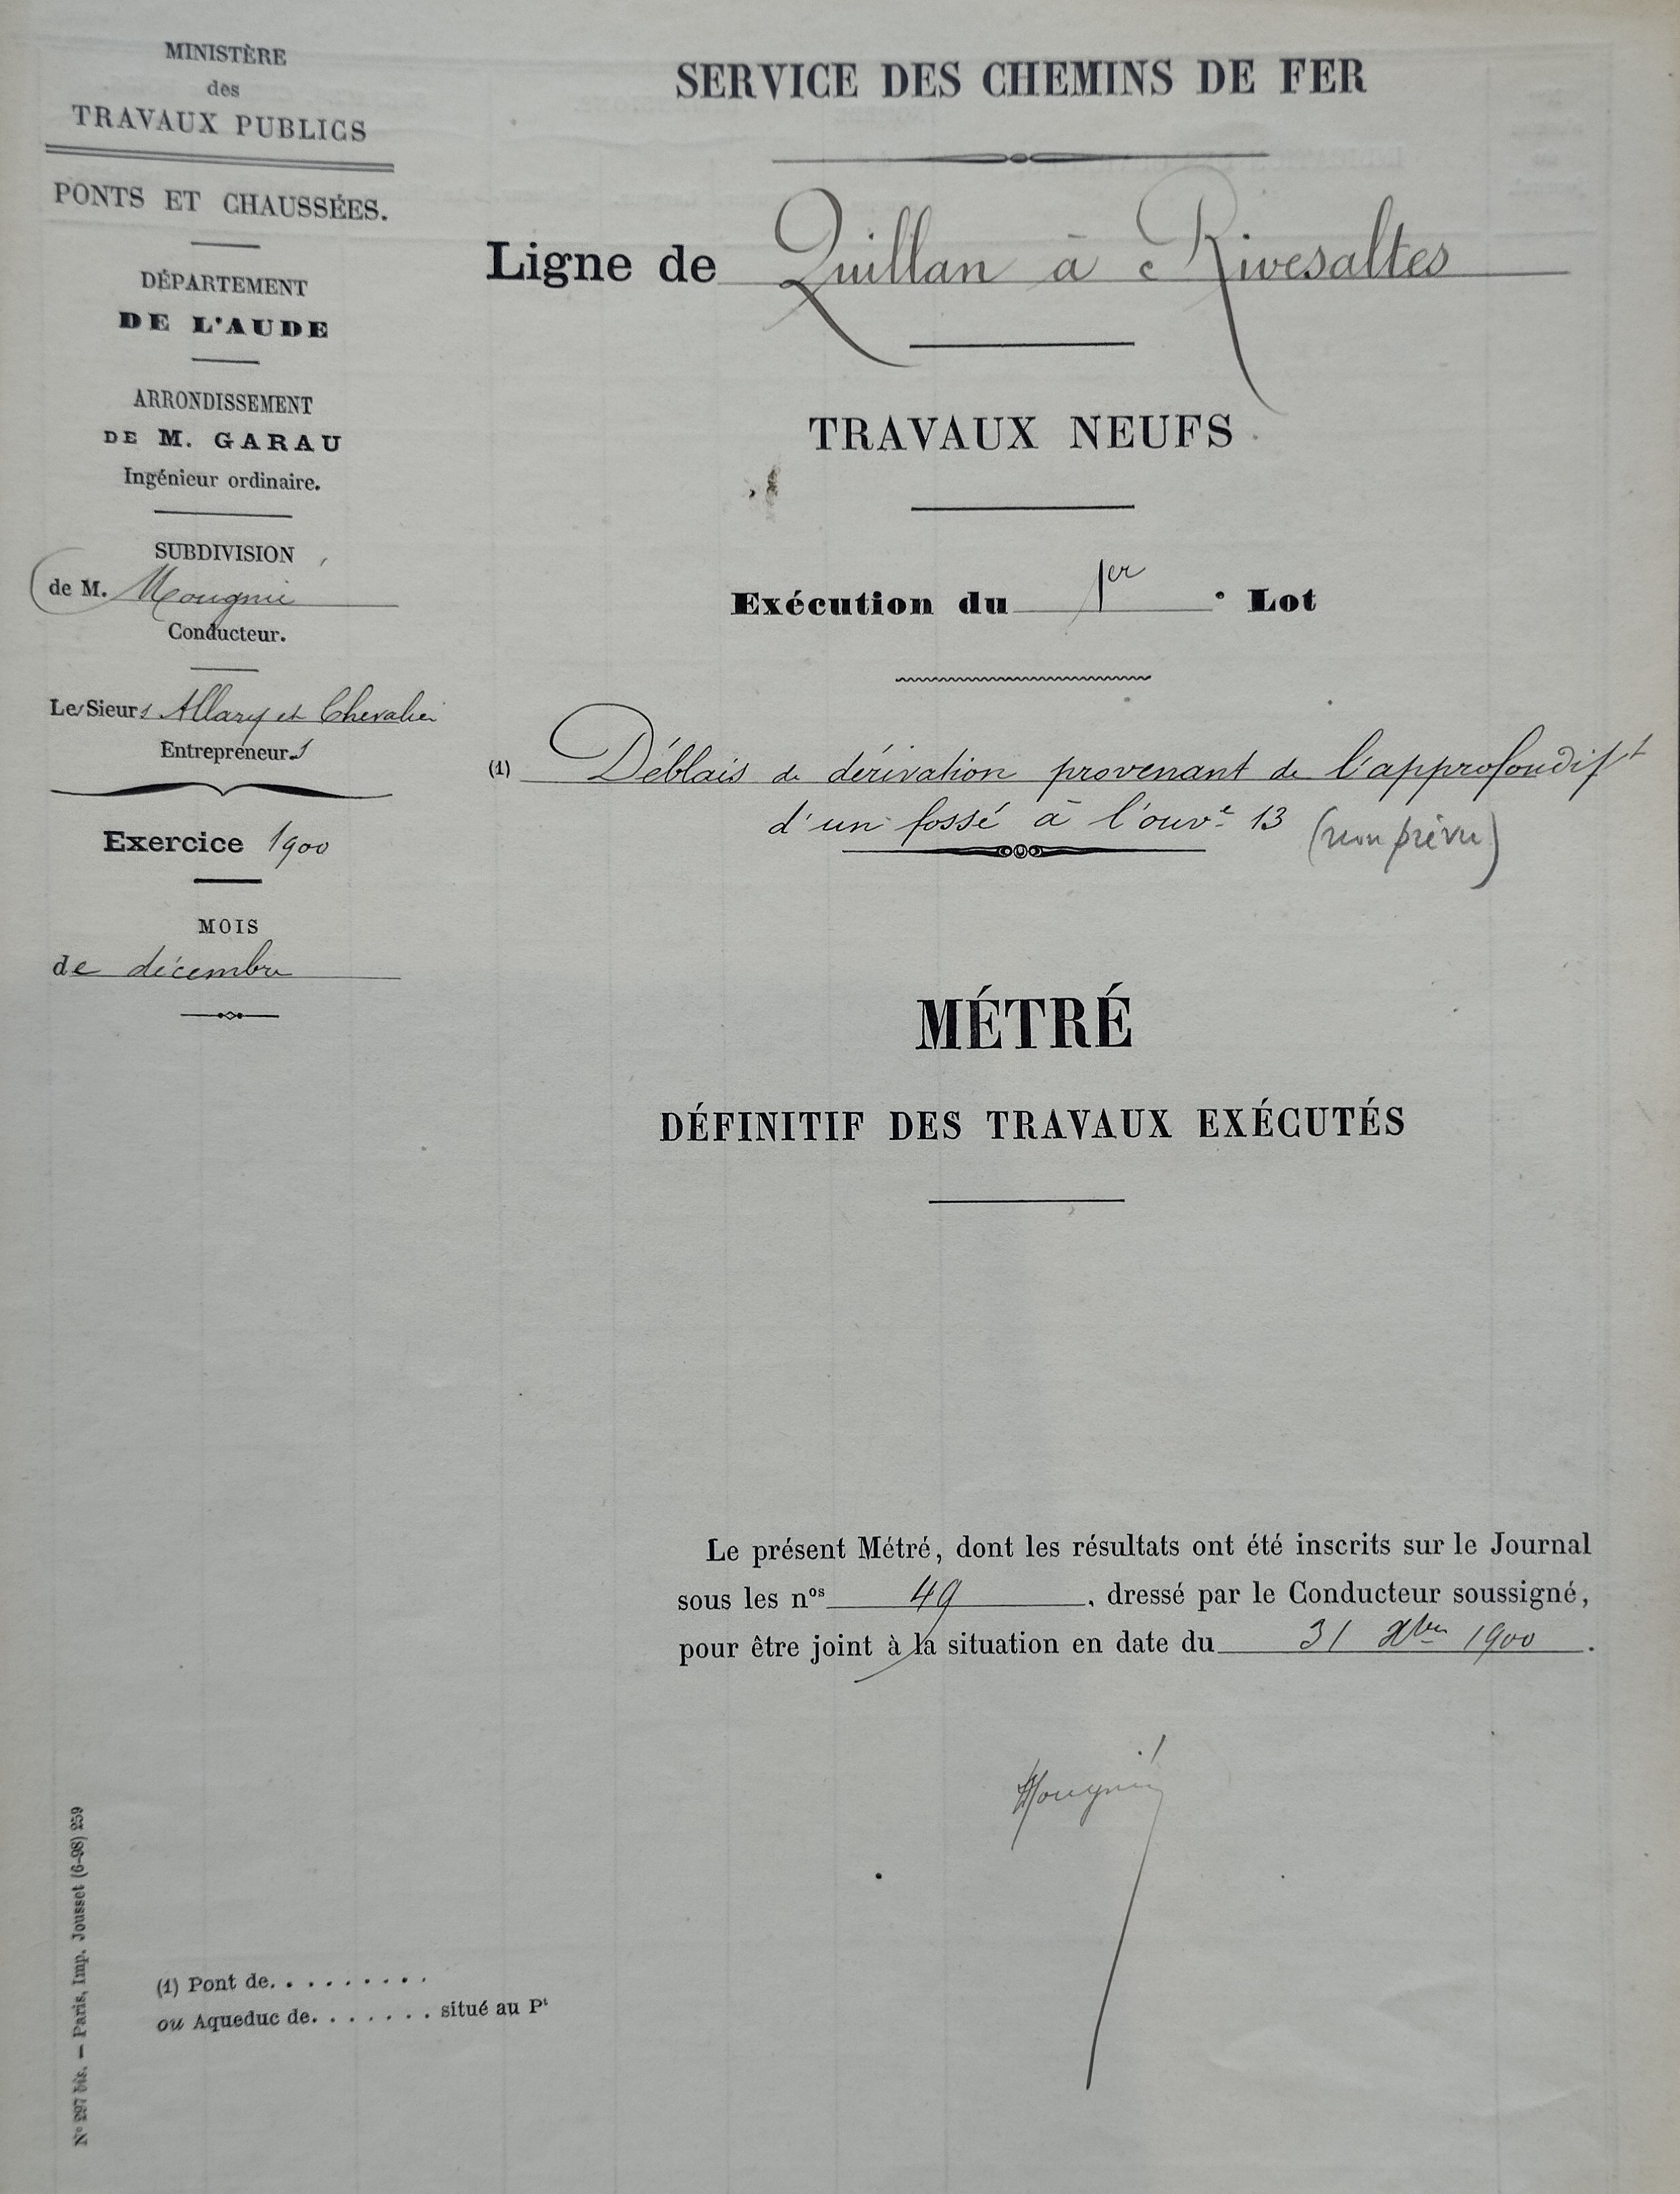 MINISTÈRE
des
TRAVAUX PUBLICS
PONTS ET CHAUSSÉES.
DÉPARTEMENT
DE L'AUDE
ARRONDISSEMENT
DE M. GARAU
Ingénieur ordinaire.
SUBDIVISION
de M. Mougnié
Conducteur.
Les Sieurs Allary et Chevalier
Entrepreneurs
Exercice 1900
MOIS
de décembre
SERVICE DES CHEMINS DE FER
Ligne de Quillan à Rivesaltes
TRAVAUX NEUFS
Exécution du 1er Lot
(1) Déblais de dérivation provenant de l'approfondisst
d'un fossé à l'ouve 13 (non prévu)
MÉTRÉ
DÉFINITIF DES TRAVAUX EXÉCUTÉS
Le présent Métré, dont les résultats ont été inscrits sur le Journal
sous les nos 49, dressé par le Conducteur soussigné,
pour être joint à la situation en date du 31 Xbre 1900.
Mougnié
(1) Pont de. . . . . . . . .
ou Aqueduc de. . . . . . . situé au Pt
No 297 bis. — Paris, Imp. Jousset (6-98) 259